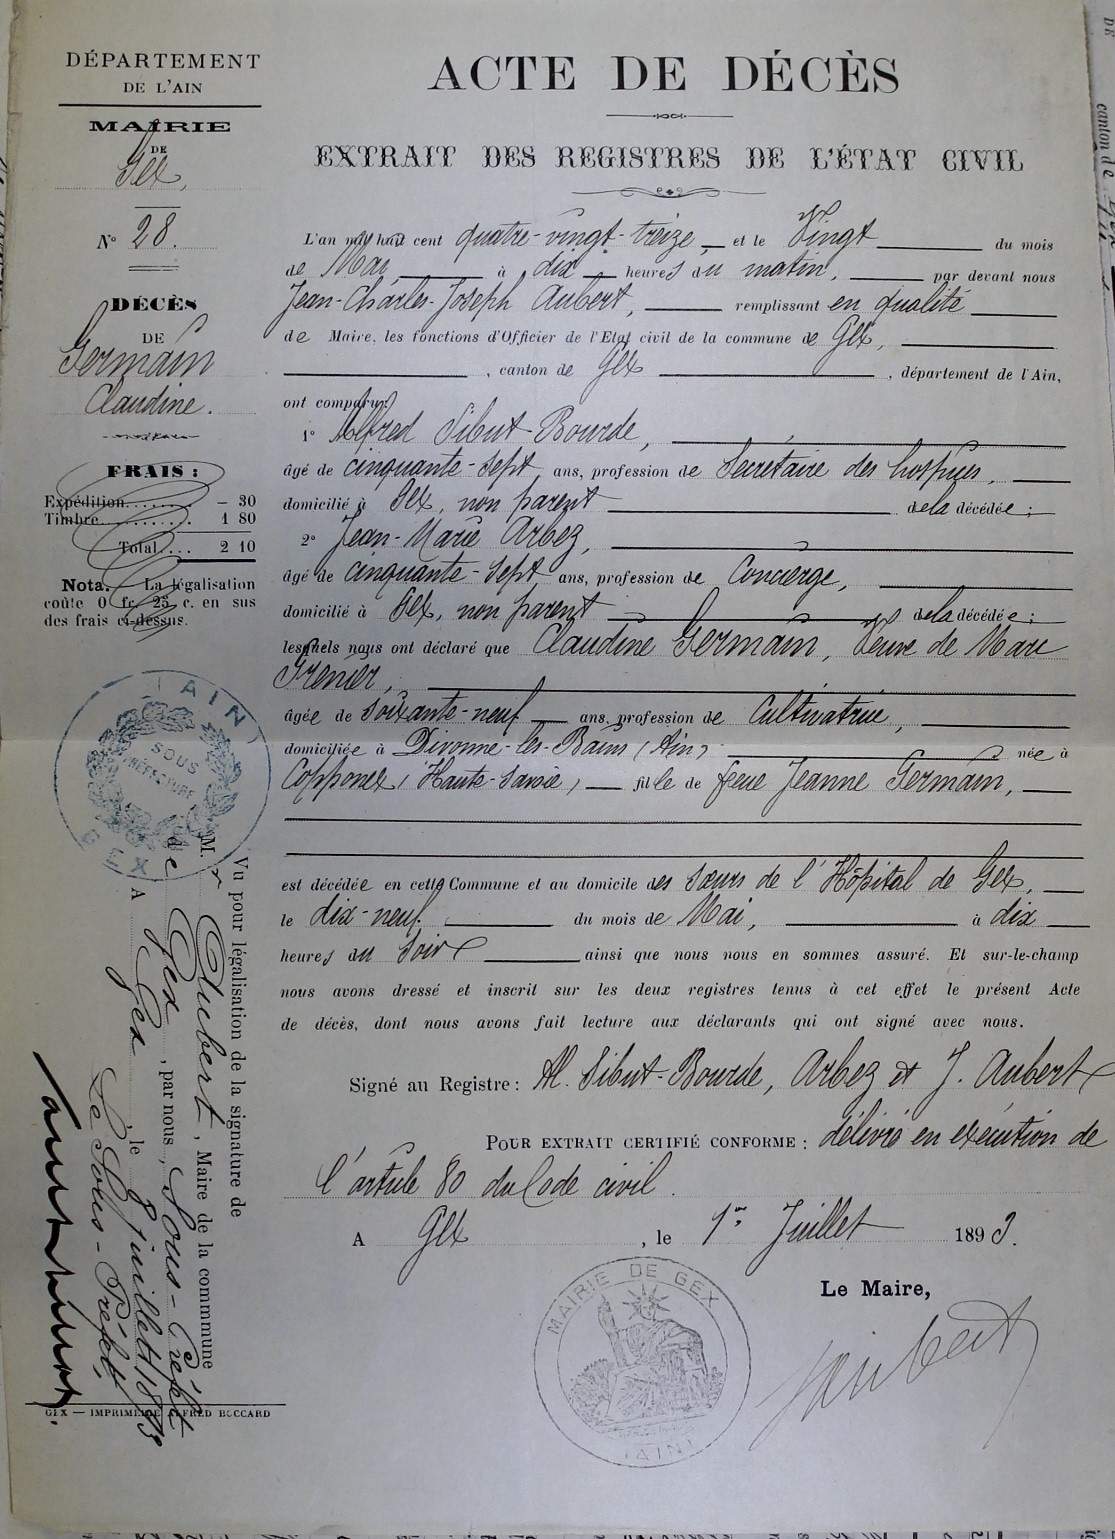 DÉPARTEMENT
DE L'AIN
MAIRIE
DE
Gex,
N° 28.
DÉCÈS
DE
Germain
Claudine.
FRAIS :
Expédition........ — 30
Timbre.......... 1 80
Total.... 2 10
Nota. — La légalisation
coûte 0 fr. 25 c. en sus
des frais ci-dessus.
AIN
SOUS
PRÉFECTURE
GEX
Vu pour légalisation de la signature de
M. r Aubert, Maire de la commune
de Gex, par nous, Sous-Préfet
A Gex, le juillet 1893
Le Sous-Préfet,
GEX — IMPRIMERIE ALFRED BOCCARD
ACTE DE DÉCÈS
EXTRAIT DES REGISTRES DE L'ÉTAT CIVIL
L'an mil huit cent quatre-vingt-treize, et le Vingt du mois
de Mai à dix heures du matin, par devant nous
Jean-Charles-Joseph Aubert, remplissant en qualité
de Maire, les fonctions d'Officier de l'Etat civil de la commune de Gex,
, canton de Gex , département de l'Ain,
ont comparu:
1° Alfred Sibut-Bourde,
âgé de cinquante-sept ans, profession de Secrétaire des hospices,
domicilié à Gex, non parent de la décédée ;
2° Jean-Marie Arbez,
âgé de cinquante-sept ans, profession de Concierge,
domicilié à Gex, non parent de la décédée ;
lesquels nous ont déclaré que Claudine Germain, Veuve de Marc
Grenier,
âgée de soixante-neuf ans, profession de Cultivatrice,
domiciliée à Divonne-les-Bains (Ain) née à
Copponex (Haute-Savoie) fille de feue Jeanne Germain,
est décédée en cette Commune et au domicile des Sœurs de l'Hôpital de Gex,
le dix-neuf du mois de Mai, à dix
heures du Soir ainsi que nous nous en sommes assuré. Et sur-le-champ
nous avons dressé et inscrit sur les deux registres tenus à cet effet le présent Acte
de décès, dont nous avons fait lecture aux déclarants qui ont signé avec nous.
Signé au Registre : Al. Sibut-Bourde, Arbez et J. Aubert
POUR EXTRAIT CERTIFIÉ CONFORME : délivré en exécution de
l'article 80 du Code civil.
A Gex , le 1er Juillet 1893.
Le Maire,
J Aubert
MAIRIE DE GEX
(AIN)